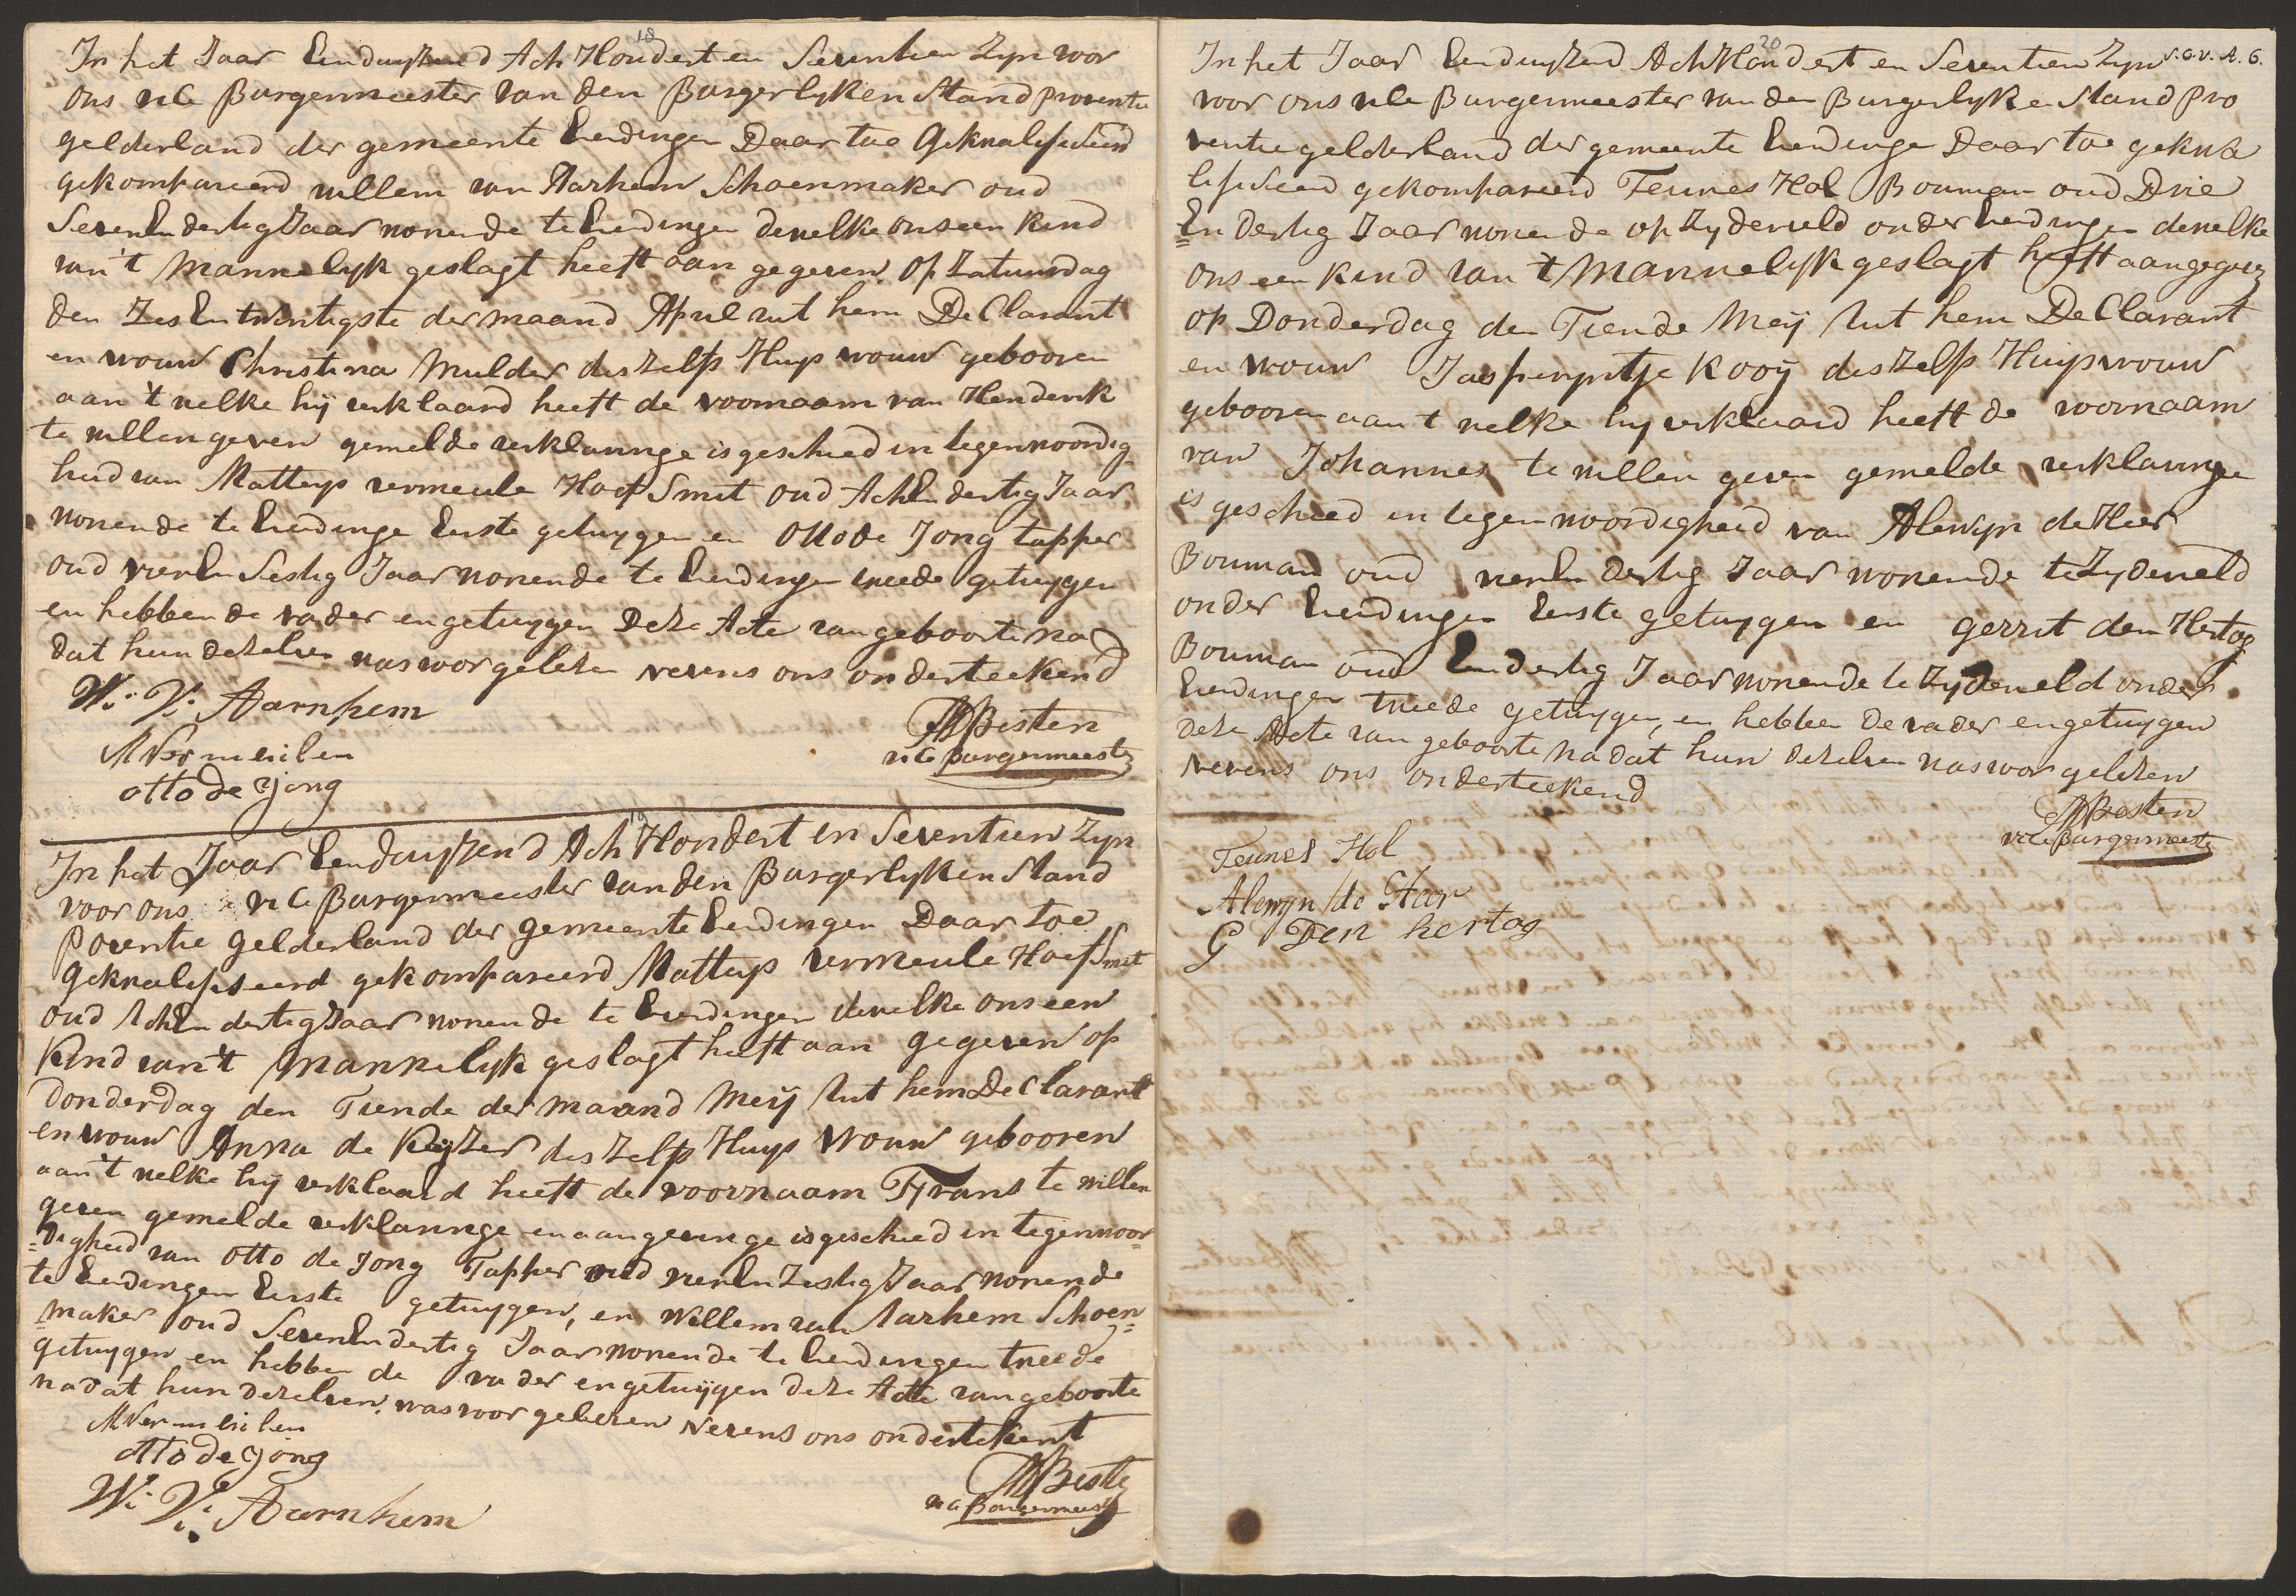 18
In het Jaar Eenduyzend Ach Hondert en Seventien Zyn voor
ons vice Burgermeester van den Burgerlyken Stand proventie
gelderland der gemeente Everdingen Daar toe Gekwalifiseerd
gekompareerd willem van Aarhem Schoenmaker oud
Seven En dertig Jaar wonende te Everdingen dewelke ons een Kind
van 't Mannelyk geslagt heeft aan gegeven op Zatuurdag
den Zes En twintigste der maand April uut hem De Clarant
en vrouw Christina Mulder des Zelfs Huys vrouw gebooren
aan 't welke hij verklaard heeft de voornaam van Henderik
te willen geven gemelde verklaringe is geschied in tegenwoordig
heid van Matteys vermeule Hoef Smit oud Acht En dertig Jaar
wonende te Everdinge Eerste getuygen en Otto de Jong tapper
oud vier En Sestig Jaar wonende te Everdingen tweede getuygen
en hebben de vader en getuygen Deze Acte van geboorte na
dat hun dezelven was voorgelezen nevens ons onderteekend
W: V: Aarnhem
M Vermeulen
otto de Jong
Besten
vice burgermeester
19
In het Jaar Eenduyzend Ach Hondert en Seventien Zyn
voor ons vice Burgermeester van den Burgerlyken Stand
Poventie Gelderland der gemeente Everdingen Daar toe
gekwalifiseerd gekompareerd Matteys vermeule Hoef Smit
oud Acht En dertig Jaar wonende te Everdingen dewelke ons een
Kind van 't Mannelyk geslagt heeft aan gegeven op
donderdag den Tiende der maand Meij uut hem De Clarant
en vrouw Anna de Keyzer des Zelfs Huys vrouw gebooren
aan 't welke hij verklaard heeft de voornaam Tyrans te willen
geven gemelde verklaringe en aangevinge is geschied in tegenwoor
=digheid van otto de Jong Tapper oud vier En Zestig Jaar wonende
te Everdingen Eerste getuygen, en Willem van Aarhem Schoen=
=maker oud Seven En dertig Jaar wonende te Everdingen tweede
getuygen en hebben de vader en getuygen deze Acte van geboorte
nadat hun dezelven was voor gelezen Nevens ons ondertekent
M Vermeulen
otto de Jong
W: V: Aarnhem
Besten
vice Burgermeester
20
S.G.V.A. 6.
In het Jaar Eenduyzend Ach Hondert en Seventien Zyn
voor ons vice Burgermeester van den Burgerlyken Stand Pro
ventie gelderland der gemeente Everdinge Daar toe gekwa
lifiseerd gekompareerd Teunes Hol Bouman oud Drie
=En Dertig Jaar wonende op Zyderveld onder Everdingen dewelke
ons een Kind van 't Mannelyk geslagt heeft aangegeven
op Donderdag den Tiende Meij uut hem De Clarant
en vrouw Jasperyntje Kooij des Zelfs Huysvrouw
gebooren aan 't welke hy verklaard heeft de voornaam
van Johannes te willen geven gemelde verklaringe
is geschied in tegenwoordigheid van Alewijn de Heer
Bouman oud vier En dertig Jaar wonende te Zyderveld
onder Everdingen Eerste getuygen en gerrit den Hertog
Bouman oud En dertig Jaar wonende te Zyderveld onder
Everdingen tweede getuygen, en hebben de vader en getuygen
deze Acte van geboorte nadat hun dezelven was voor gelezen
Nevens ons onderteekend
Besten
vice Burgermeester
Teunes Hol
Alewyn de Heer
G Den hertog